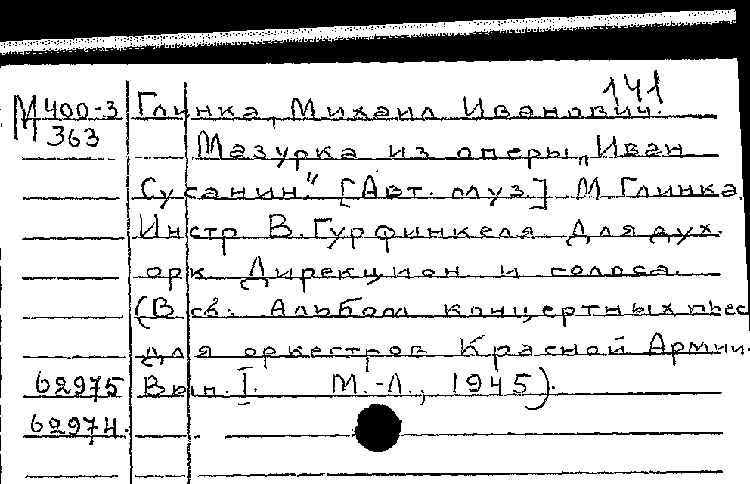 141
М 400-3 Глинка, Михаил Иванович.
363
Мазурка из оперы „Иван
Сусанин." [Авт. муз.] М Глинка.
Инстр В. Гурфинкеля Для дух.
орк Дирекцион и голоса.
(В сб. Альбом концертных пьес
для оркестров Красной Армии.
62975 Вып. I. М.-Л., 1945).
62974.